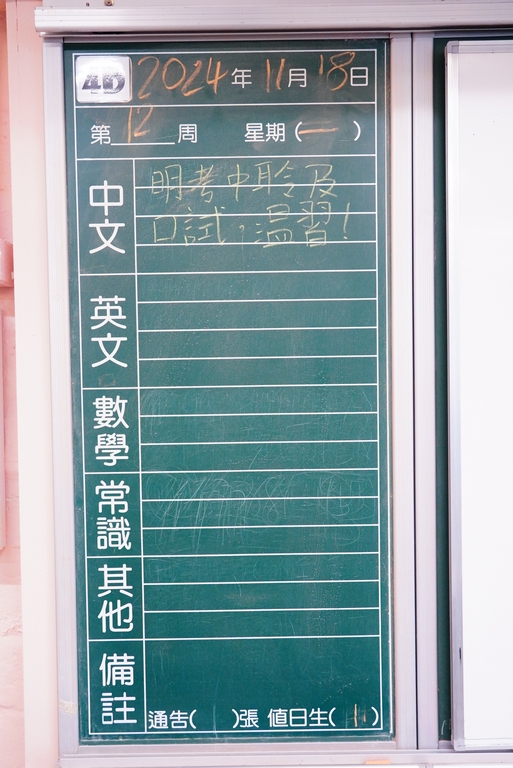 4D 2024年11月18日
第12周 星期(一)
中文
明考中聆及
口試,温習!
英文
數學
常識
其他
備註
通告( )張 值日生(11)